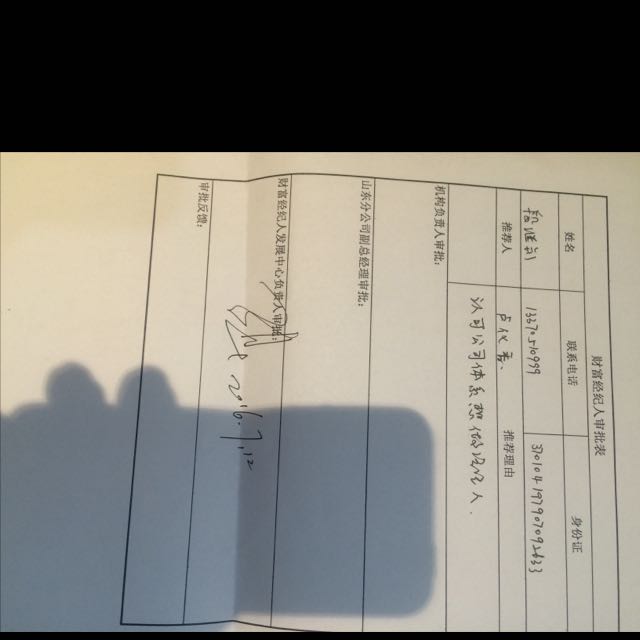 财富经纪人审批表
姓名 联系电话 身份证
13370510999 370104197907092633
推荐人 推荐理由
认可公司体系想做经纪人.
机构负责人审批：
山东分公司副总经理审批：
财富经纪人发展中心负责人审批：
2016.7.12
审批反馈：